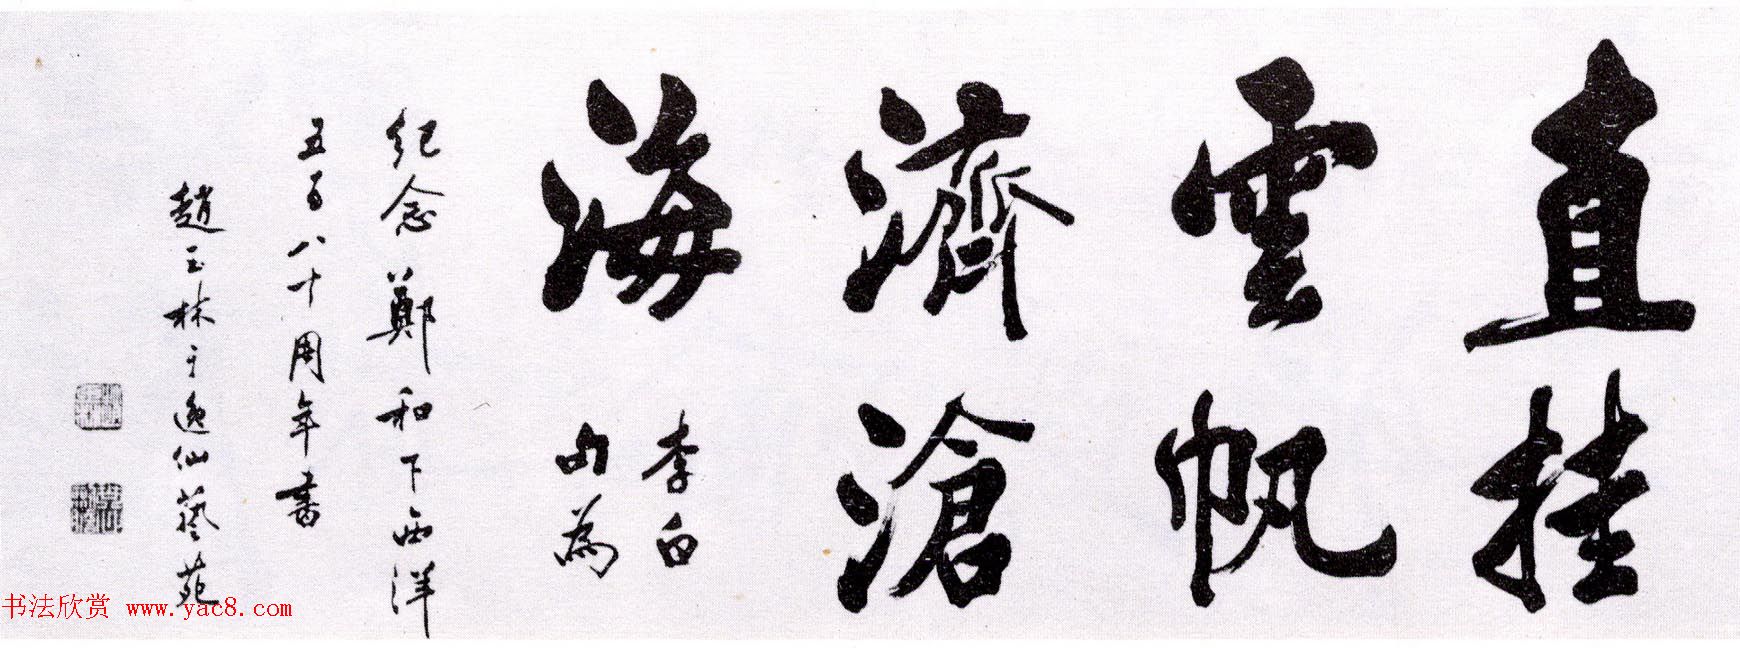 直挂
雲帆
濟滄
海
李白
句為
紀念鄭和下西洋
五百八十周年書
趙玉林于逸仙藝苑
书法欣赏 www.yac8.com